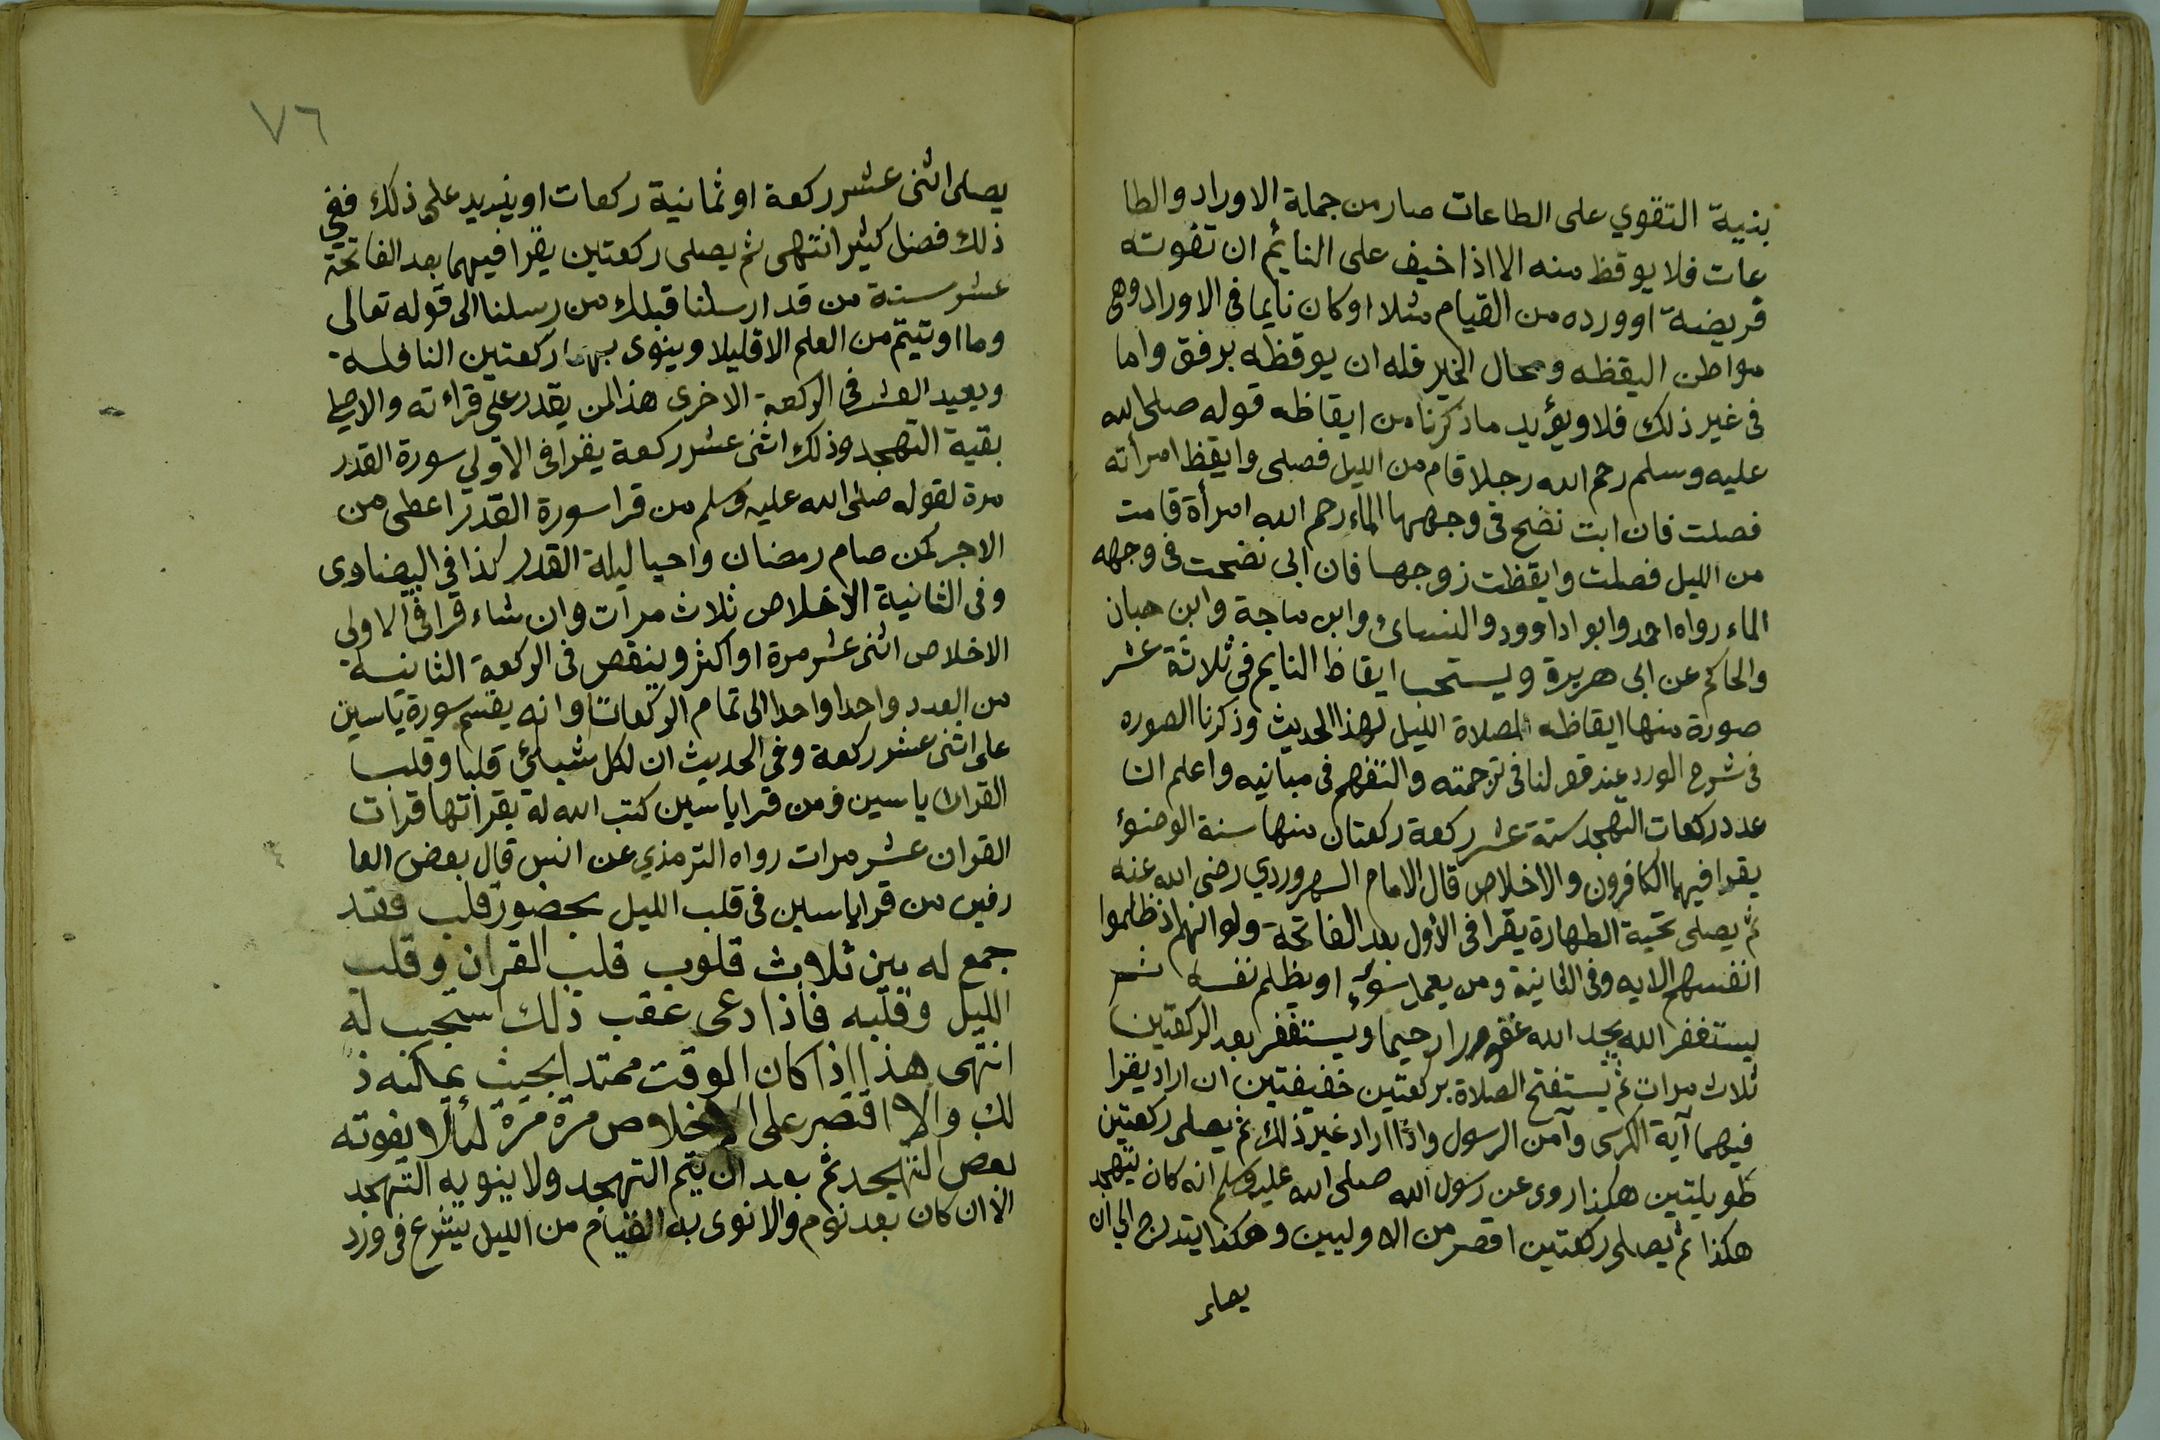 بنية التقوي على الطاعات صار من جملة الاوراد والطا
عات فلا يوقظ منه الا اذا خيف على النايم ان تفوته
فريضة او ورده من القيام مثلا او كان نايما في الاوراد وهي
مواطن اليقظه ومحال الخير فله ان يوقظه برفق واما
في غير ذلك فلا ويؤيد ما ذكرنا من ايقاظه قوله صلى الله
عليه وسلم رحم الله رجلا قام من الليل فصلى وايقظ امرأته
فصلت فان ابت نضح في وجهها الماء رحم الله امرأة قامت
من الليل فصلت وايقظت زوجها فان ابى نضحت في وجهه
الماء رواه احمد وابو اداوود والنسائ وابن ماجة وابن حبان
والحاكم عن ابى هريرة ويستحب ايقاظ النايم في ثلاثة عشر
صورة منها ايقاظه لصلاة الليل لهذا الحديث وذكرنا الصوره
في شرح الورد عند قولنا في ترجمته والتفهم في مبانيه واعلم ان
عدد ركعات التهجد ستة عشر ركعة ركعتان منها سنة الوضوء
يقرا فيهما الكافرون والاخلاص قال الامام السهروردي رضي الله عنه
ثم يصلى تحية الطهارة يقرا في الأول بعد الفاتحة ولو انهم اذ ظلموا
انفسهم الايه وفي الثانية ومن يعمل سوء او يظلم نفسه ثم
يستغفر الله يجد الله غفورا رحيما ويستغفر بعد الركعتين
ثلاث مرات ثم يستفتح الصلاة بركعتين خفيفتين ان اراد يقرا
فيهما آية الكرسى وآمن الرسول واذا اراد غير ذلك ثم يصلى ركعتين
طويلتين هكذا روى عن رسول الله صلى الله عليه وسلم انه كان يتهجد
هكذا ثم يصلى ركعتين اقصر من الاوليين وهكذا يتدرج الى ان
يصلى
٧٦
يصلى اثنى عشر ركعة او ثمانية ركعات او يزيد على ذلك ففي
ذلك فضل كثير انتهى ثم يصلى ركعتين يقرا فيهما بعد الفاتحة
عشر سنة من قد ارسلنا قبلك من رسلنا الى قوله تعالى
وما اوتيتم من العلم الا قليلا وينوى بهما ركعتين النافلة
ويعيد العشر في الركعة الاخرى هذا لمن يقدر على قراءته والا يصلي
بقية التهجد وذلك اثنى عشر ركعة يقرا في الاولى سورة القدر
مرة لقوله صلى الله عليه وسلم من قرا سورة القدر اعطى من
الاجر كمن صام رمضان واحيا ليلة القدر كذا في البيضاوى
وفي الثانية الاخلاص ثلاث مرات وان شاء قرا في الاولى
الاخلاص اثنى عشر مرة او اكثر وينقص في الركعة الثانية
من العدد واحدا واحدا الى تمام الركعات وانه يقسم سورة ياسين
على اثنى عشر ركعة وفي الحديث ان لكل شيائ قلبا وقلب
القران ياسين ومن قرا ياسين كتب الله له بقراتها قرات
القران عشر مرات رواه الترمذي عن انس قال بعض العا
رفين من قرا ياسين في قلب الليل بحضور قلب فقد
جمع له بين ثلاث قلوب قلب القران وقلب
الليل وقلبه فاذا دعى عقب ذلك استجيب له
انتهى هذا اذا كان الوقت ممتدا بحيث يمكنه ذ
لك والا اقتصر على الاخلاص مرة مرة لئلا يفوته
بعض التهجد ثم بعد ان يتم التهجد ولا ينو به التهجد
الا ان كان بعد نوم والا نوى به القيام من الليل يشرع في ورد